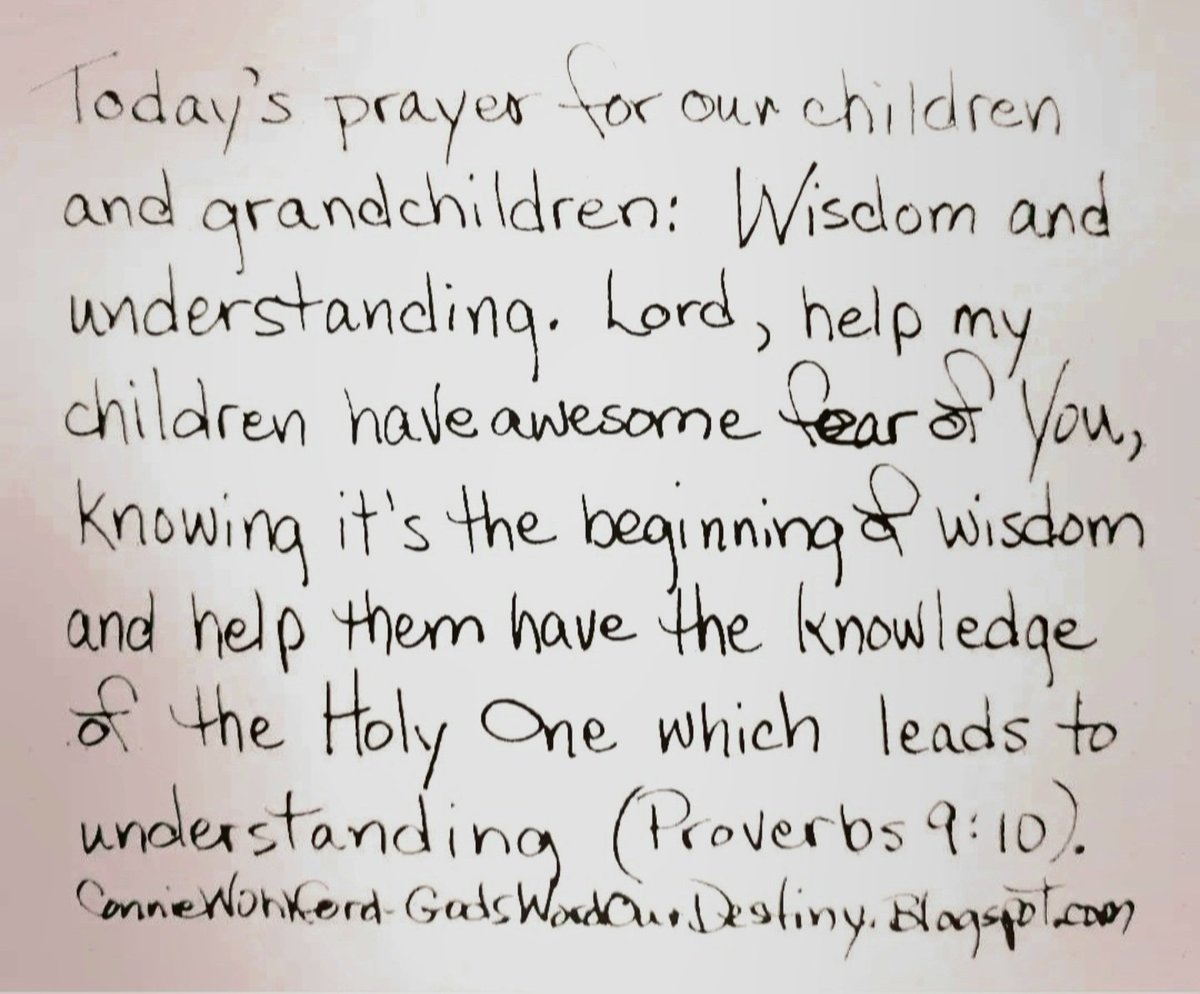 Today's prayer for our children
and grandchildren: Wisdom and
understanding. Lord, help my
children have awesome fear of You,
Knowing it's the beginning of wisdom
and help them have the knowledge
of the Holy One which leads to
understanding (Proverbs 9:10).
Connie Wohlford-GodsWordOurDestiny.Blogspot.com